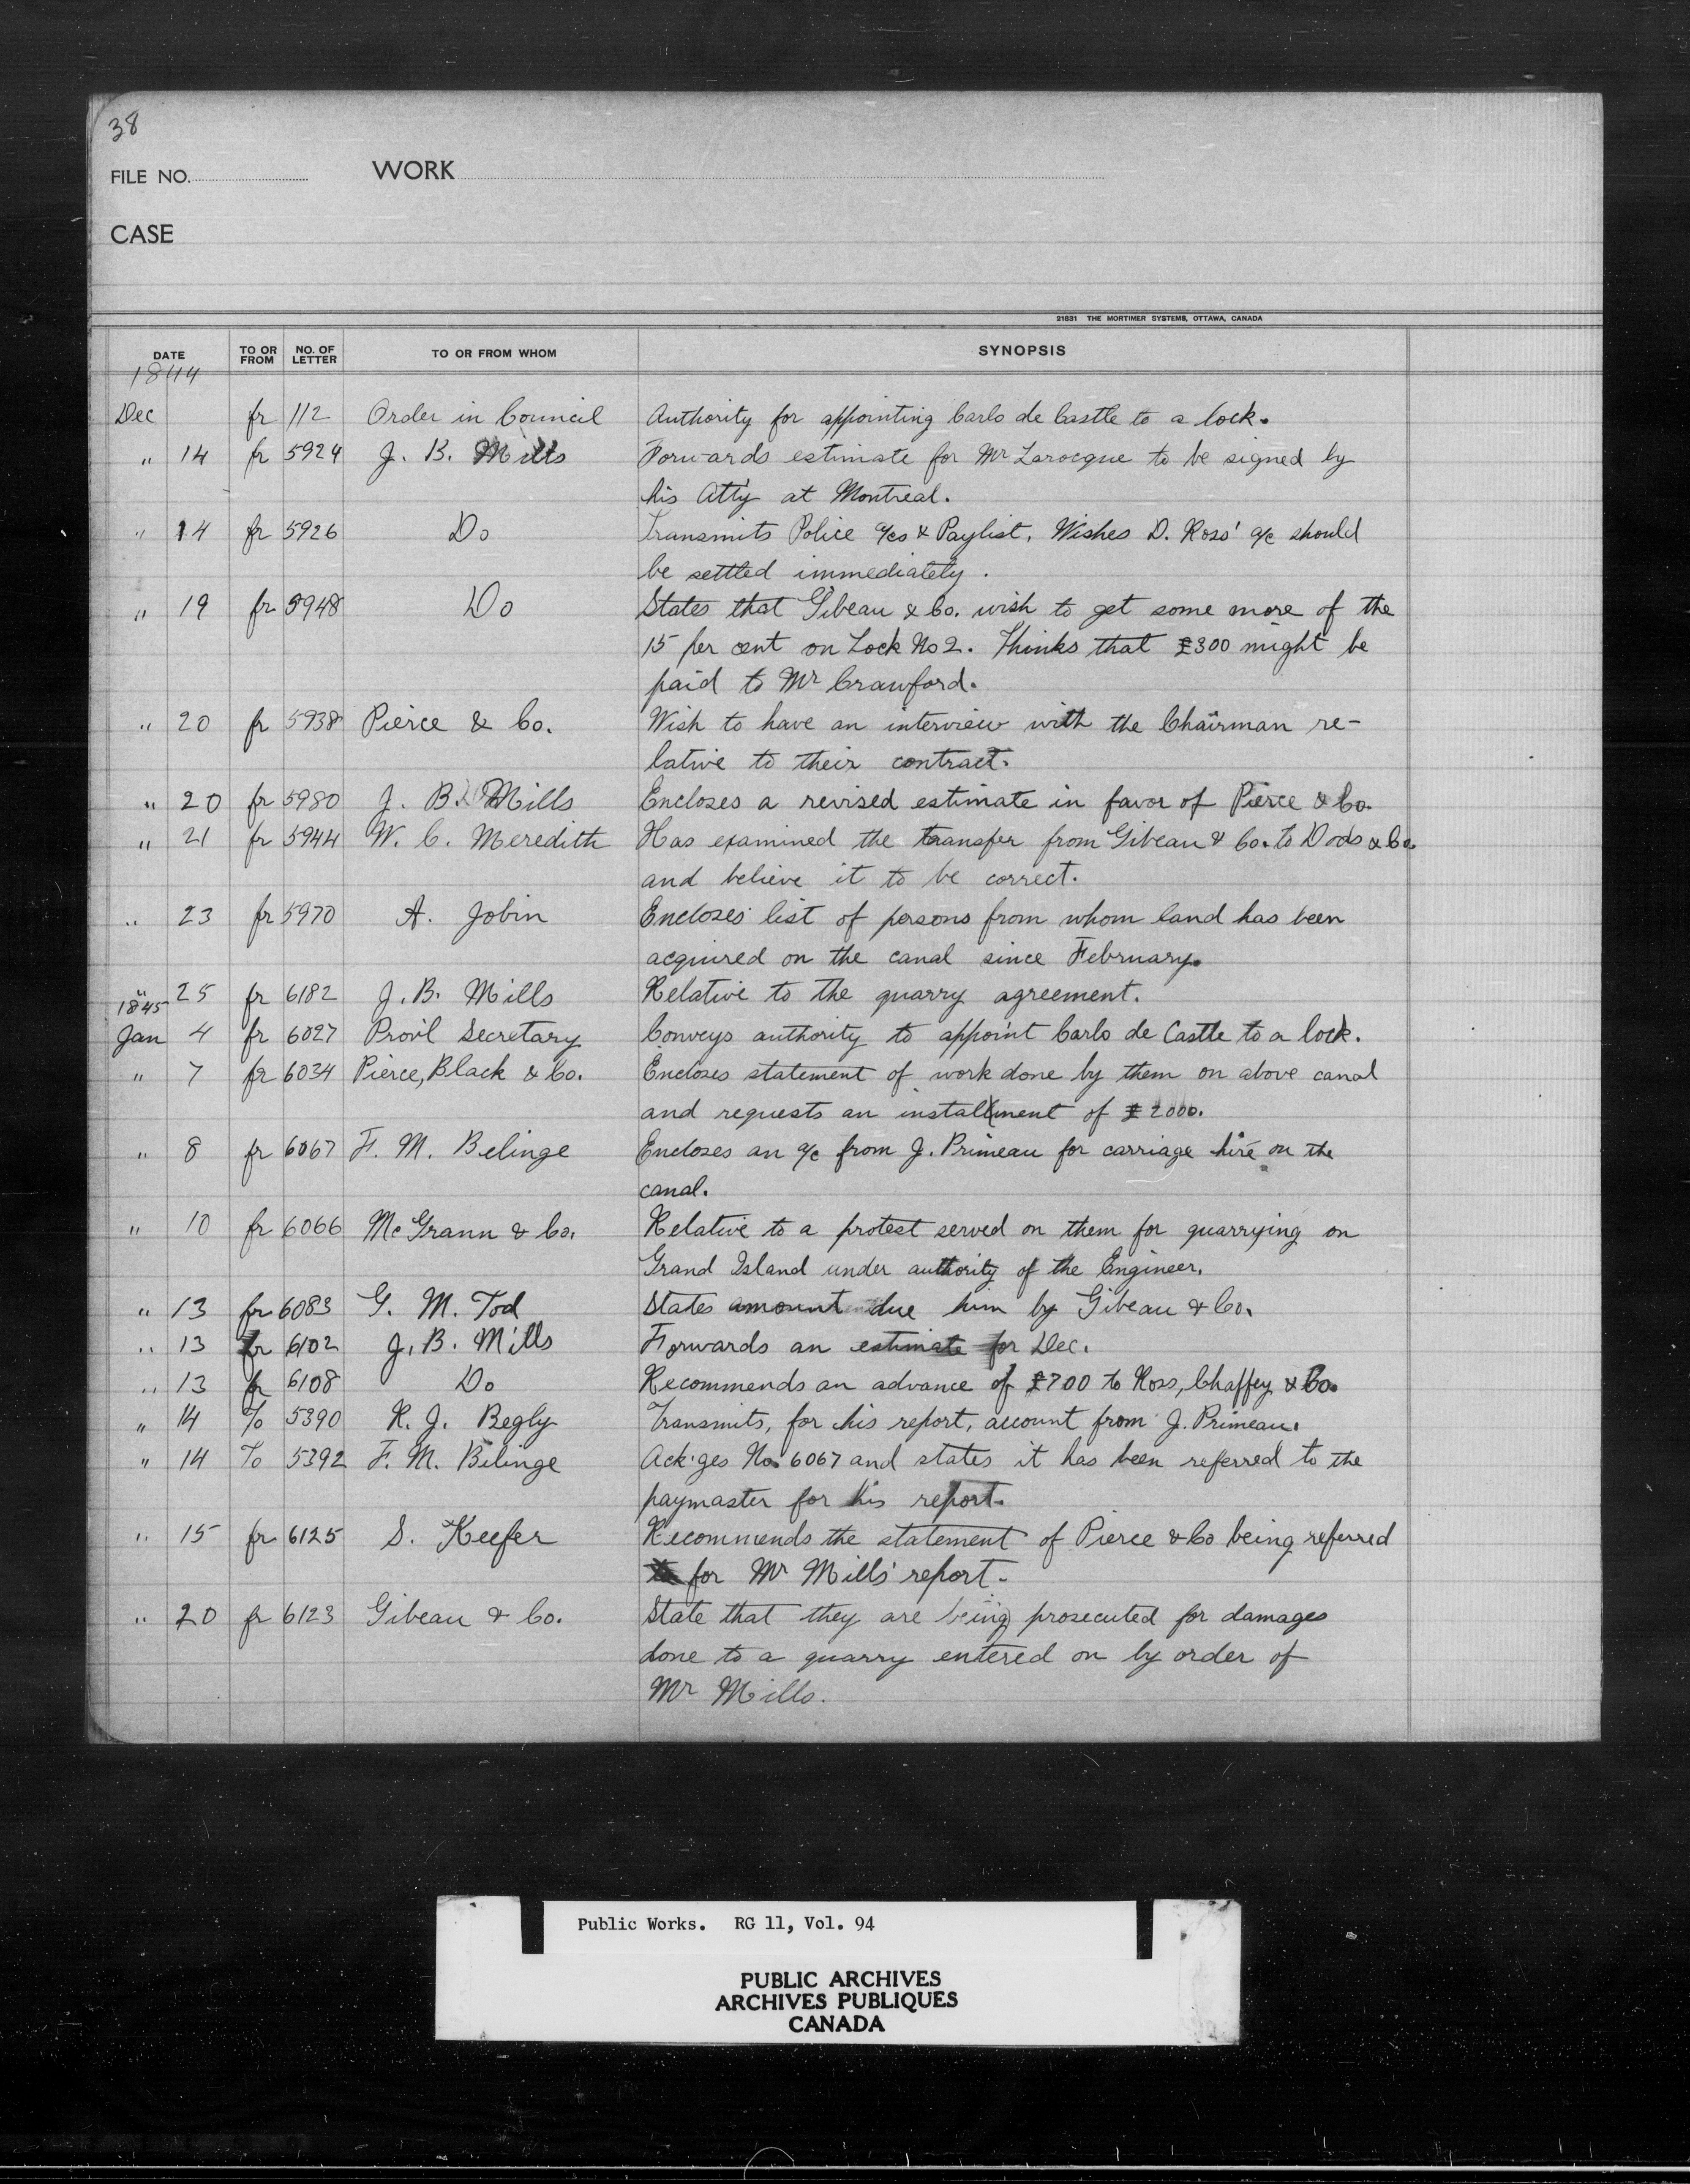 38
FILE NO. WORK
CASE
21631 THE MORTIMER SYSTEMS, OTTAWA, CANADA
DATE TO OR FROM NO. OF LETTER TO OR FROM WHOM SYNOPSIS
1844
Dec fr 112 Order in Council Authority for appointing Carlo de Castle to a lock.
" 14 fr 5924 J. B. Mills Forwards estimate for Mr Larocque to be signed by
his Att'y at Montreal.
" 14 fr 5926 Do Transmits Police a/cs & Paylist. Wishes D. Ross' a/c should
be settled immediately.
" 19 fr 5948 Do States that Gibeau & Co. wish to get some more of the
15 per cent on Lock No 2. Thinks that £300 might be
paid to Mr Crawford.
" 20 fr 5938 Pierce & Co. Wish to have an interview with the Chairman re-
lative to their contract.
" 20 fr 5980 J. B. Mills Encloses a revised estimate in favor of Pierce & Co.
" 21 fr 5944 W. C. Meredith Has examined the transfer from Gibeau & Co. to Dods & Co.
and believe it to be correct.
" 23 fr 5970 A. Jobin Encloses list of persons from whom land has been
acquired on the canal since February.
" 25 fr 6182 J. B. Mills Relative to the quarry agreement.
1845
Jan 4 fr 6027 Prov'l Secretary Conveys authority to appoint Carlo de Castle to a lock.
" 7 fr 6034 Pierce, Black & Co. Encloses statement of work done by them on above canal
and requests an installment of £2000.
" 8 fr 6067 F. M. Belinge Encloses an a/c from J. Primeau for carriage hire on the
canal.
" 10 fr 6066 McGrann & Co. Relative to a protest served on them for quarrying on
Grand Island under authority of the Engineer.
" 13 fr 6083 G. M. Tod States amount due him by Gibeau & Co.
" 13 fr 6102 J. B. Mills Forwards an estimate for Dec.
" 13 fr 6108 Do Recommends an advance of £700 to Ross, Chaffey & Co.
" 14 To 5390 R. J. Begly Transmits, for his report, account from J. Primeau.
" 14 To 5392 F. M. Bélinge Ack'ges No. 6067 and states it has been referred to the
paymaster for his report.
" 15 fr 6125 S. Keefer Recommends the statement of Pierce & Co being referred
for Mr Mills' report.
" 20 fr 6123 Gibeau & Co. State that they are being prosecuted for damages
done to a quarry entered on by order of
Mr Mills.
Public Works. RG 11, Vol. 94
PUBLIC ARCHIVES
ARCHIVES PUBLIQUES
CANADA